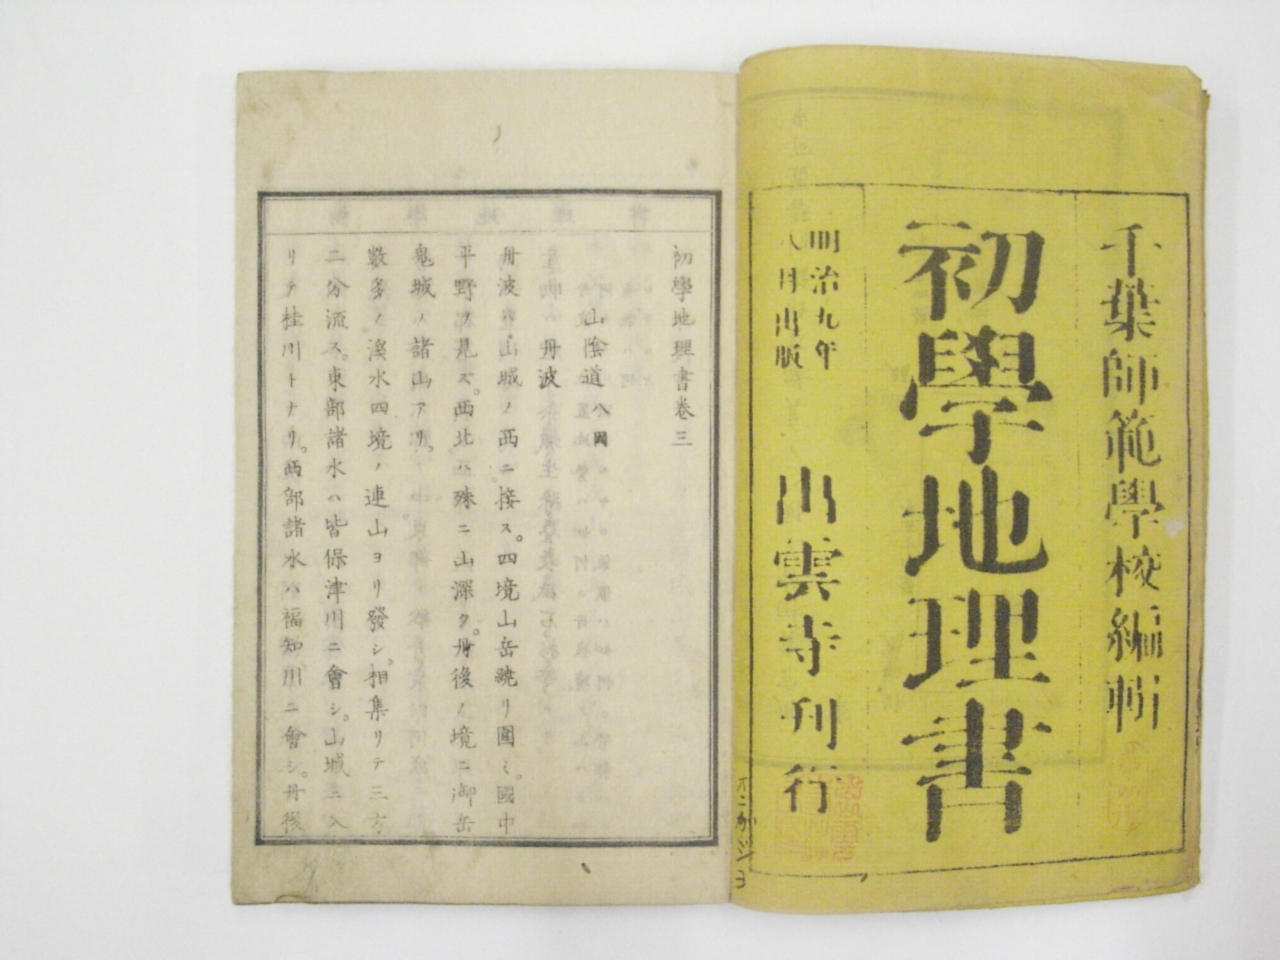 千葉師範學校編輯
初學地理書
明治九年
八月出版
出雲寺刊行
初學地理書卷三
山陰道八國
丹波
丹波ハ山城ノ西ニ接ス。四境山岳繞リ圍ミ。國中
平野ヲ見ズ。西北ハ殊ニ山深ク。丹後ノ境ニ御岳
鬼城ノ諸山アリ。
數多ノ溪水四境ノ連山ヨリ發シ。相集リテ三方
ニ分流ス。東部諸水ハ皆保津川ニ會シ。山城ニ入
リテ桂川トナリ。西部諸水ハ福知川ニ會シ。丹後